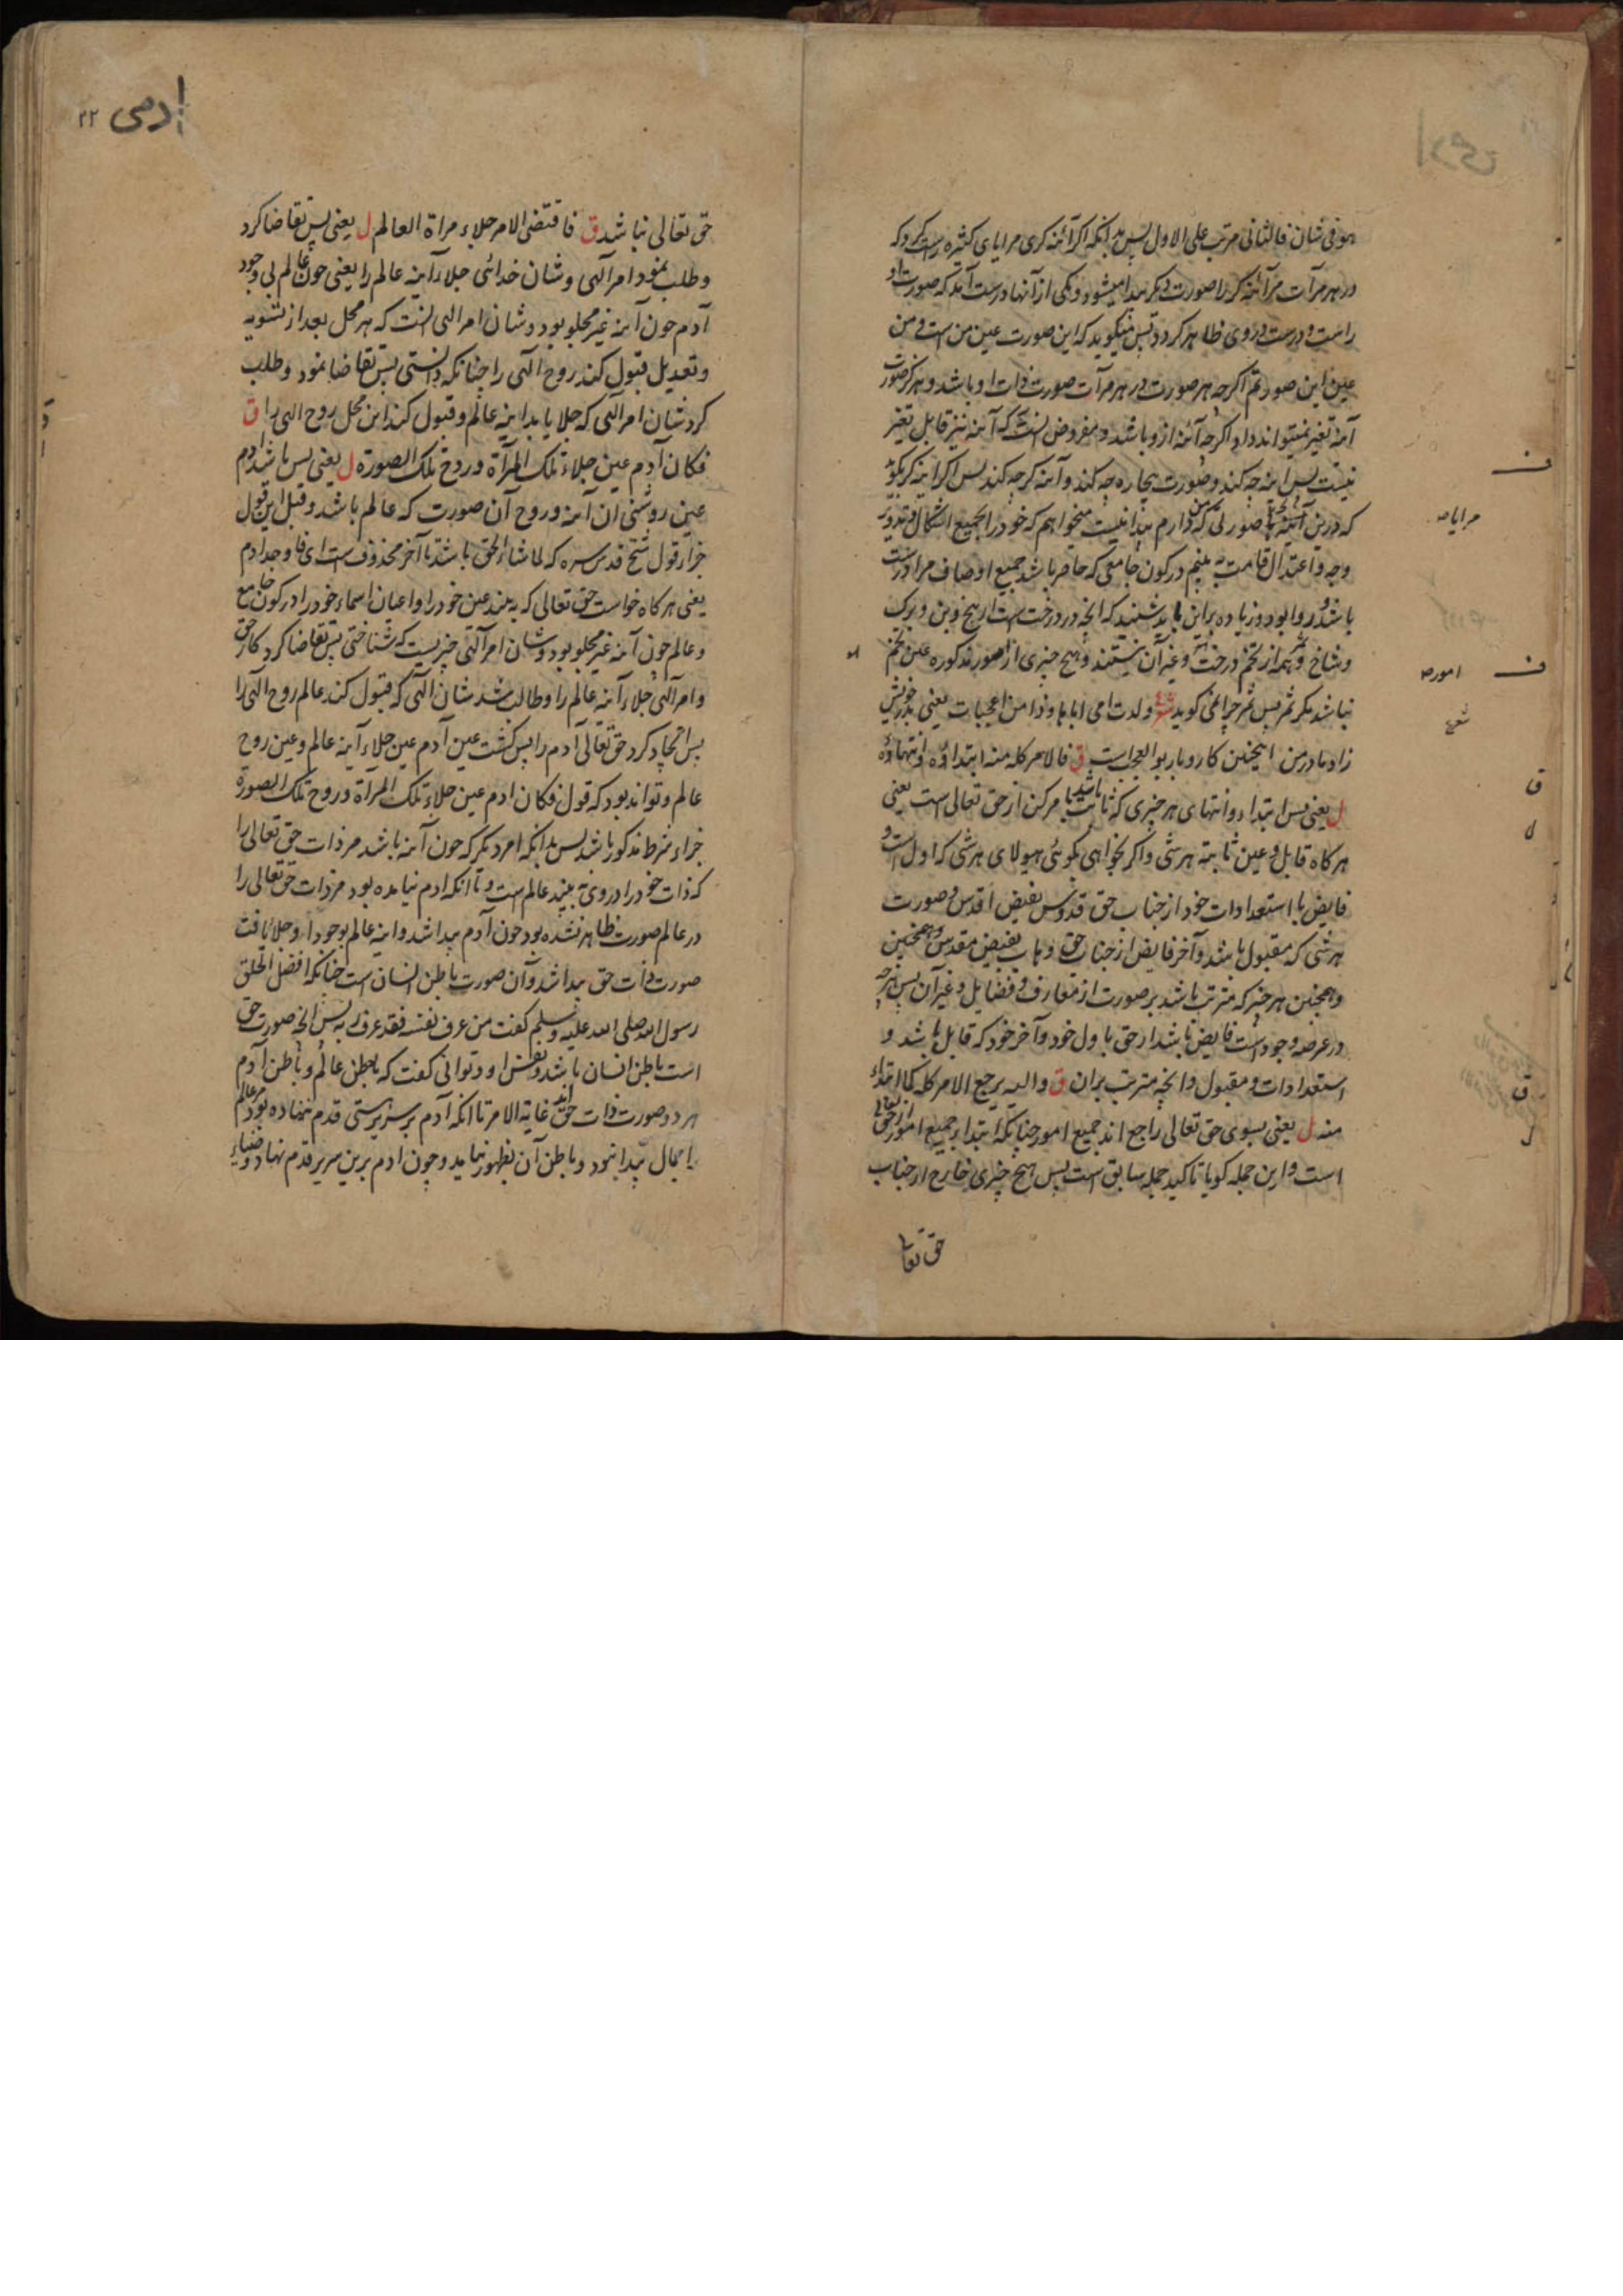 هو فی شان فالثانی مرتب علی الاول پس بدانکه اکر آئنه کری مرایای کثیره راست کرد که
در هر مرآت مر آئنه کر را صورت دیکر پیدا میشود و یکی از آنها درست آمد که صورت او
راست و درست در وی ظاهر کردد پس میکوید که این صورت عین من است و من
عین این صورتم اکرچه هر صورت در هر مرآت صورت ذات او باشد و هرکز صورت
آئنه تغیر نمیتواند داد اکرچه آئنه ازو باشد و مفروض انست که آئنه نیز قابل تغیر
نیست پس آینه چه کند و صورت بیچاره چه کند و آئنه کر چه کند پس اکر آینه کر بکوید
که درین آئنه صورتی که من دارم پیدا نیست میخواهم که خود را بجمیع اشکال و تدویر
وجه و اعتدال قامت به بینم در کون جامعی که حاصر باشد جمیع اوصاف مرا درست
باشد و روا بود و زیاده برین باید شنید که انچه در درخت است از بیخ و بن و برک
و شاخ و ثمر همه از تخم درخت اند و غیر آن نیستند و هیچ چیزی از امور مذکوره عین تخم
نباشد مکر ثمر پس ثمر چرا نمی کوید شعر ولدت امی اباها و ذا من اعجبات یعنی پدر خویش
زاد مادر من اینچنین کاروبار بوالعجب است ق فالامر کله منه ابتداؤه و انتهاؤه
ل یعنی پس ابتداء و انتهای هر چیزی که ثابت باشد بامر کن از حق تعالی است یعنی
هرکاه قابل و عین ثابته هر شی و اکر بخواهی بکوئی هیولای هر شی که اول است و
فایض با استعدادات خود از جناب حق قدوس بفیض اقدس و صورت
هر شی که مقبول باشد و آخر فایض از جناب حق وهاب بفیض مقدس و همچنین
و همچنین هر چیز که مترتب باشد بر صورت از معارف و فضایل و غیر آن پس هرچه
در عرضه وجود است فایض باشد از حق باول خود و آخر خود که قابل باشد و
استعدادات و مقبول و انچه مترتب بران ق والیه یرجع الامر کله کما ابتداء
منه ل یعنی بسوی حق تعالی راجع اند جمیع امور چنانکه ابتداء جمیع امور از حق تعالی
است و این جمله کویا تاکید جمله سابق است پس هیچ چیزی خارج از جناب
حق تعا
ف
مرایا صه
ف
امور صه
شعر
ق
ل
ق
ل
ادمی ۲۲
حق تعالی نباشد ق فاقتضی الامر جلاء مراة العالم ل یعنی پس تقاضا کرد
و طلب نمود امر آلهی و شان خدائی جلاء آینه عالم را یعنی چون عالم بی وجود
آدم چون آینه غیر مجلو بود و شان امر الهی انست که هر محل بعد از تسویه
و تعدیل قبول کند روح آلهی را چنانکه دانستی پس تقاضا نمود و طلب
کرد شان امر الهی که جلا یابد اینه عالم و قبول کند این محل روح الهی را ق
فکان آدم عین جلاء تلک المرآة و روح تلک الصورة ل یعنی پس باشد ادم
عین روشنی ان آئنه و روح آن صورت که عالم باشد و قبل این قول
جزاء قول شیخ قدس سره که لما شاء الحق باشد تا آخر محذوف است ای فاوجد ادم
یعنی هرکاه خواست حق تعالی که به بیند عین خود را و اعیان اسماء خود را در کون جامع
و عالم چون آئنه غیر مجلو بود و شان امر آلهی چنر یست که شناختی پس تقاضا کرد کار حق
و امر آلهی جلاء آئنه عالم را و طالب شد شان الهی که قبول کند عالم روح الهی را
پس اتجاد کرد حق تعالی آدم را پس کشت عین آدم عین جلاء آینه عالم و عین روح
عالم و تواند بود که قول فکان ادم عین جلاء تلک المرآة و روح تلک الصورة
جزاء شرط مذکور باشد پس بدانکه امر دیکر که چون آئنه باشد مر ذات حق تعالی را
که ذات خود را در وی به بیند عالم است و تا انکه ادم نیامده بود مر ذات حق تعالی را
در عالم صورت ظاهر نشده بود چون آدم پیدا شد و اینه عالم بوجود او جلا یافت
صورت ذات حق پیدا شد و آن صورت باطن انسان است چنانکه افضل الخلق
رسول الله صلی الله علیه وسلم کفت من عرف نفسه فقد عرف ربه پس انچه صورت حق
است باطن انسان باشد و نفس او و توانی کفت که باطن عالم و باطن آدم
هر دو صورت ذات حق اند غایة الامر تا انکه آدم بر سریر هستی قدم ننهاده بود مر عالم
را کمال پیدا نبود و باطن آن بظهور نیامد و چون ادم برین سریر قدم نهاد و ضیاء